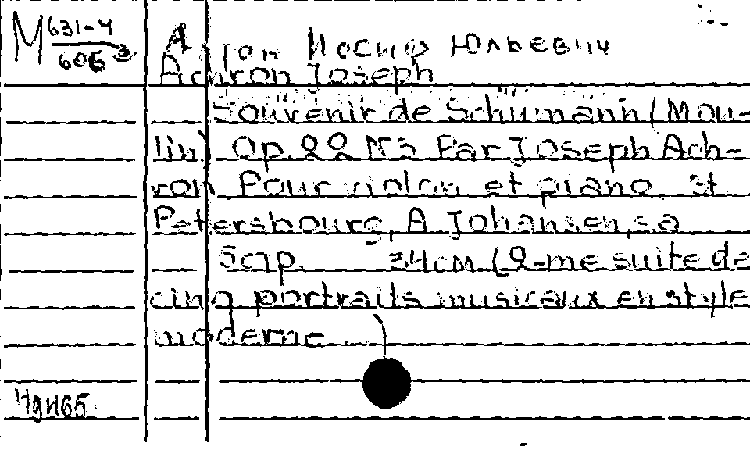 M 631-4
606
Ахрон Иосиф Юльевич
Achron Joseph
Souvenir de Schumann (Mou-
lin) Op. 22 N3 Par Joseph Ach-
ron Pour violon et piano. St
Petersbourg, A Johansen, s.a
5стр. 34см (2-me suite de
cinq portraits musicaux en style
moderne)